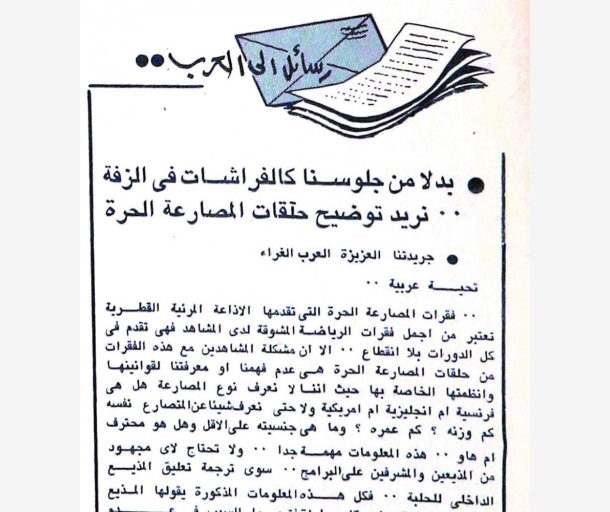 رسائل الى العرب ••
• بدلا من جلوسنا كالفراشات فى الزفة
•• نريد توضيح حلقات المصارعة الحرة
• جريدتنا العزيزة العرب الغراء
تحية عربية ••
•• فقرات المصارعة الحرة التى تقدمها الاذاعة المرئية القطرية
تعتبر من اجمل فقرات الرياضة المشوقة لدى المشاهد فهى تقدم فى
كل الدورات بلا انقطاع •• الا ان مشكلة المشاهدين مع هذه الفقرات
من حلقات المصارعة الحرة هى عدم فهمنا او معرفتنا لقوانينها
وانظمتها الخاصة بها حيث اننا لا نعرف نوع المصارعة هل هى
فرنسية ام انجليزية ام امريكية ولا حتى نعرف شيئا عن المتصارع نفسه
كم وزنه ؟ كم عمره ؟ وما هى جنسيته على الاقل وهل هو محترف
ام هاو •• هذه المعلومات مهمة جدا •• ولا تحتاج لاى مجهود
من المذيعين والمشرفين على البرامج •• سوى ترجمة تعليق المذيع
الداخلى للحلبة •• فكل هذه المعلومات المذكورة يقولها المذيع